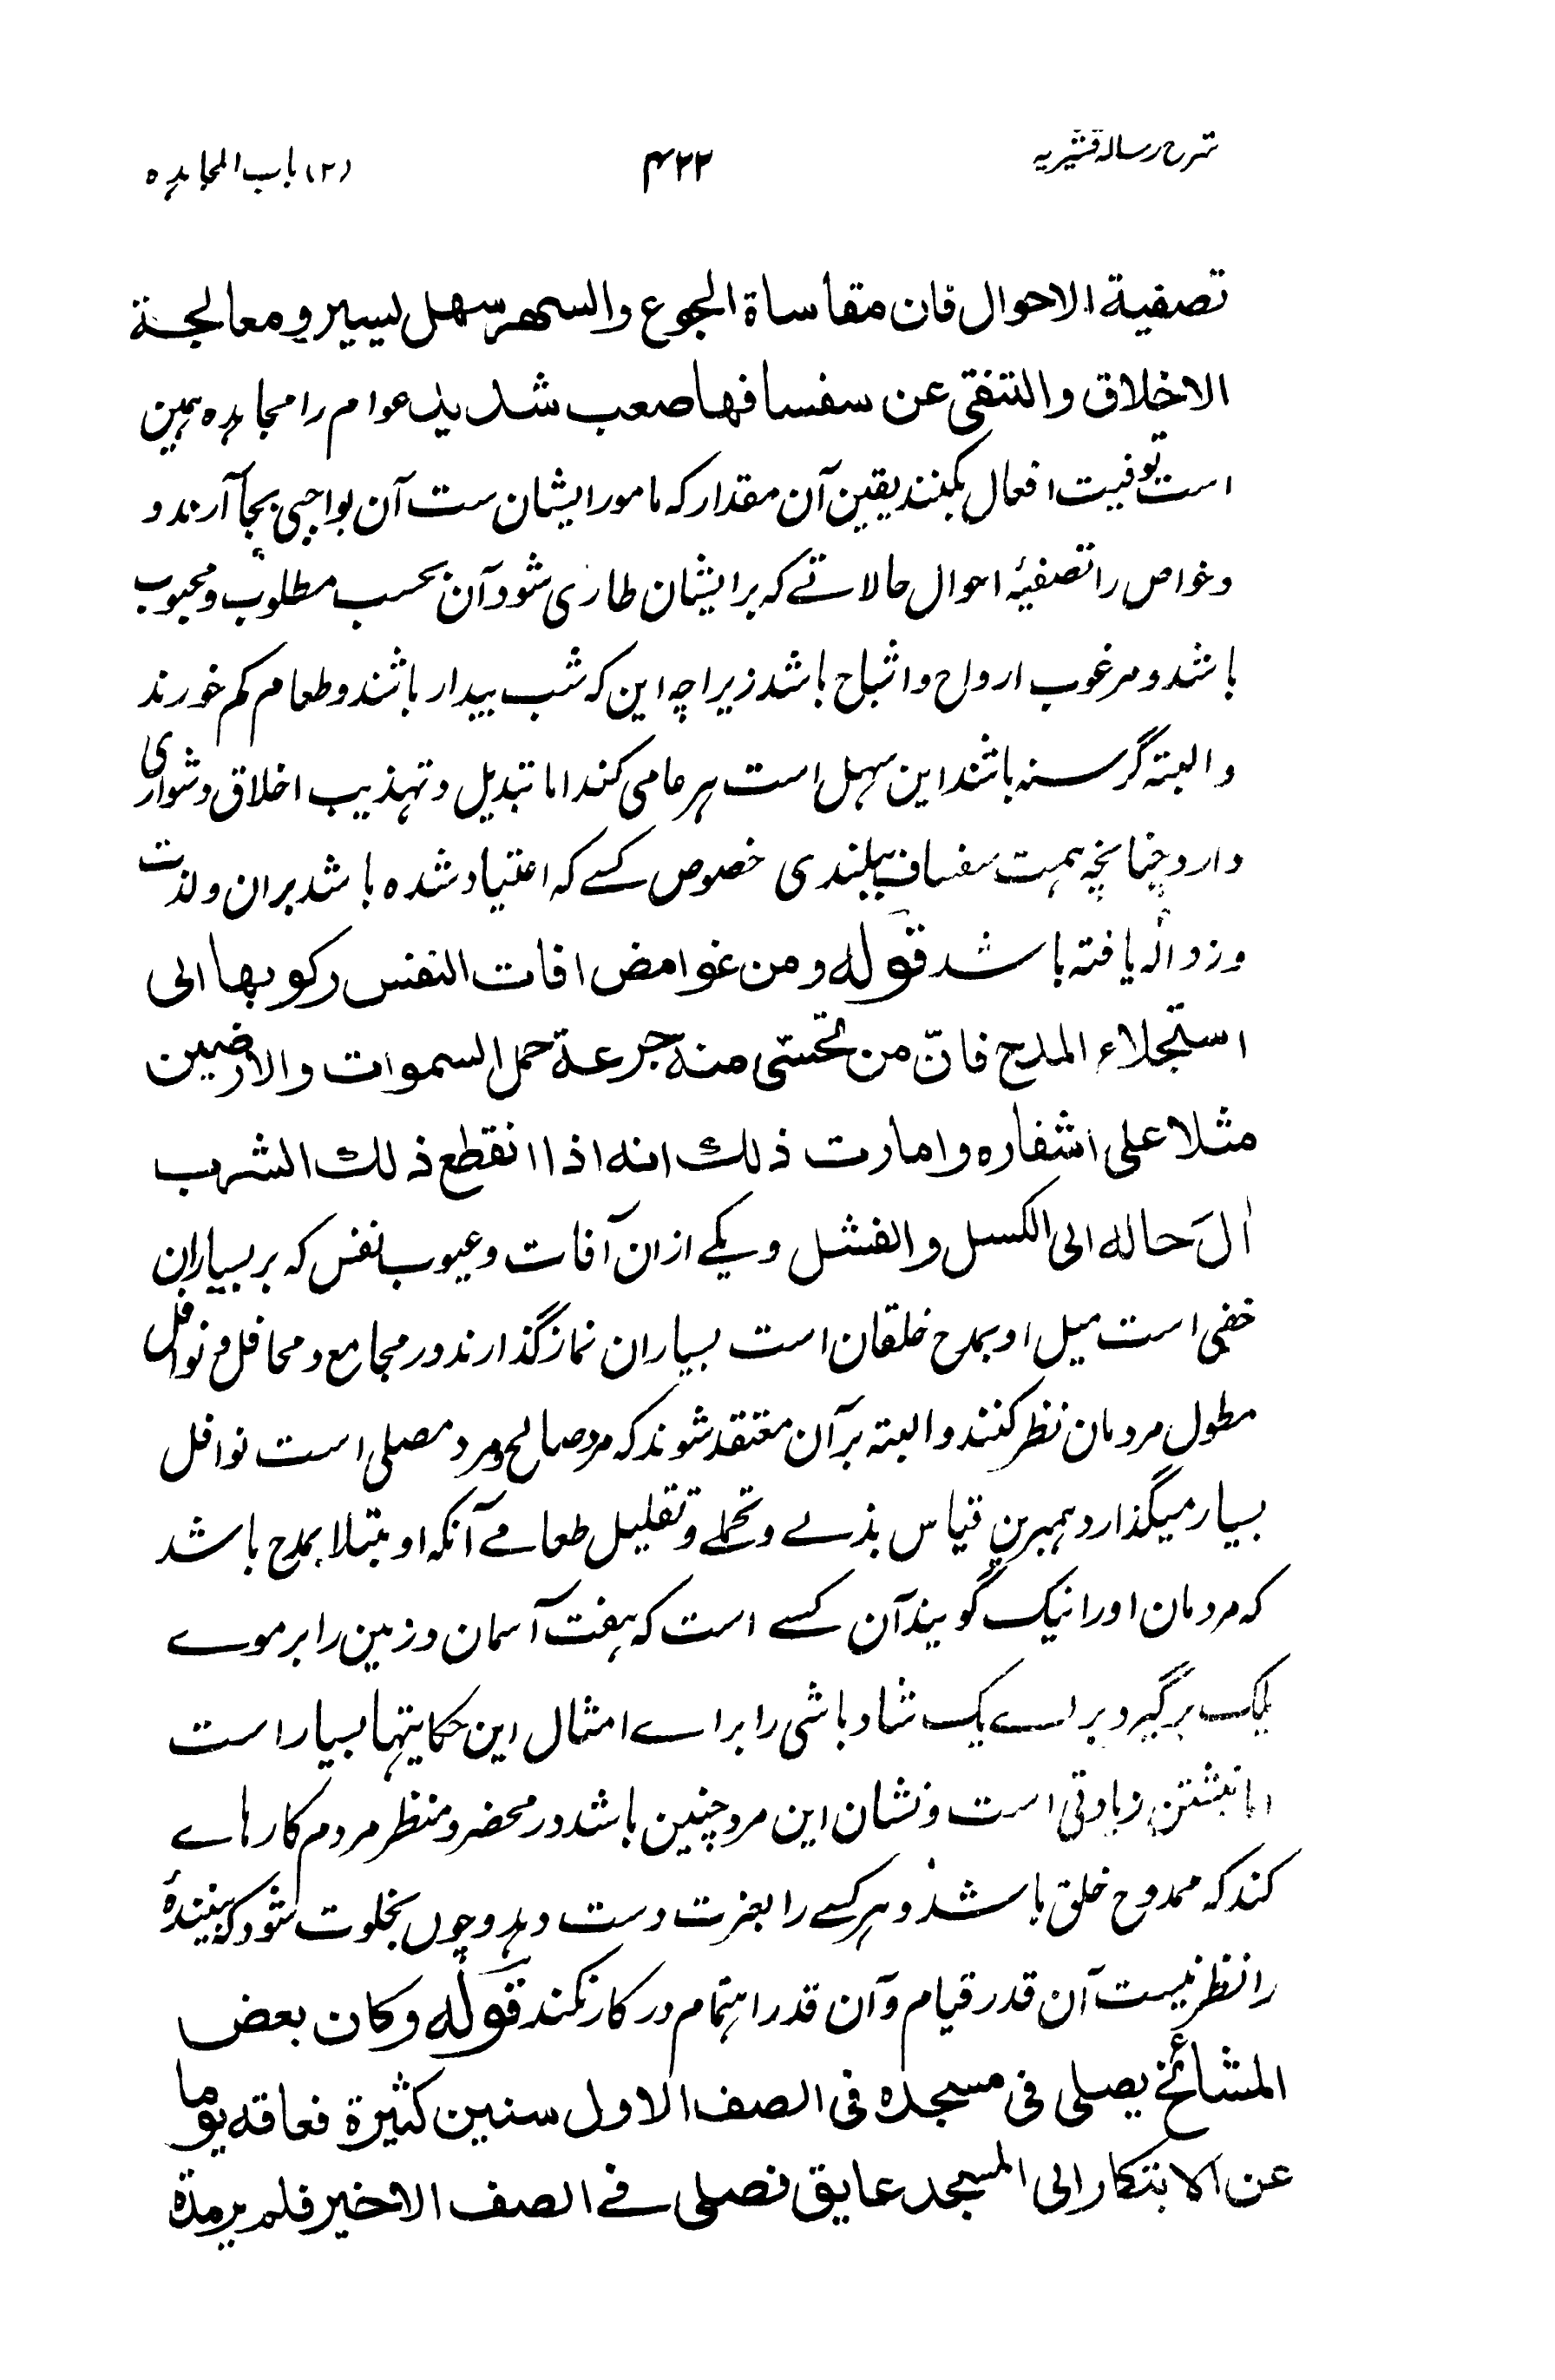 شرح رساله قشیریه ۴۲۲ (۲) باب المجاہدہ
تصفیة الاحوال فان مقاساة الجوع والسهر سهل یسیر ومعالجة
الاخلاق والتنقی عن سفسافها صعب شدید عوام را مجاہدہ ہمین
است توفیت افعال بکنند یقین آن مقدار کہ مامور ایشان ست آن بواجبی بجا آرند و
وخواص را تصفیۂ احوال حالاتے کہ بر ایشان طاری شود آن بحسب مطلوب و محبوب
باشد و مرغوب ارواح و اشباح باشد زیراچہ این کہ شب بیدار باشند و طعام کم خورند
و البتہ گرسنہ باشند این سہل است ہر عامی کند اما تبدیل و تہذیب اخلاق دشواری
دارد چنانچہ ہمت سفساف ببلندی خصوص کسے کہ اعتیاد شدہ باشد بران ولذت
وزوالہ یافتہ باشد قوله ومن غوامض افات النفس رکوبها الی
استجلاء المدح فانّ من تحسّی منه جرعة حمل السموات والارضین
مثلا علی اشفاره وامارت ذلك انه اذا انقطع ذلك الشرب
اٰلَ حاله الی الکسل والفشل ویکے ازان آفات و عیوب نفس کہ بر بسیاران
خفی است میل او بمدح خلقان است بسیاران نماز گذارند در مجامع و محافل و نوافل
مطول مردمان نظر کنند و البتہ برآن معتقد شوند کہ مرد صالح و مرد مصلی است نوافل
بسیار میگذارد ہمبرین قیاس بذلے و تحملے و تقلیل طعامے آنکہ او مبتلا بمدح باشد
کہ مردمان او را نیک گویند آن کسے است کہ ہفت آسمان و زمین را بر موے
پلک برگیرد براے یک شاد باشی را براے امثال این حکایتہا بسیار است
اما نبشتن زیادتی است و نشان این مرد چنین باشد در محضر و منظر مردم کارہاے
کند کہ ممدوح خلق باشد و ہر کسے را بعزت دست دہد و چوں بخلوت شود کہ بینندۂ
را نظر نیست آن قدر قیام و آن قدر اہتمام در کار نکند قوله وکان بعض
المشائخ یصلی فی مسجده فی الصف الاول سنین کثیرة فعاقه یوما
عن الابتکار الی المسجد عایق فصلی فے الصف الاخیر فلم یر مدة